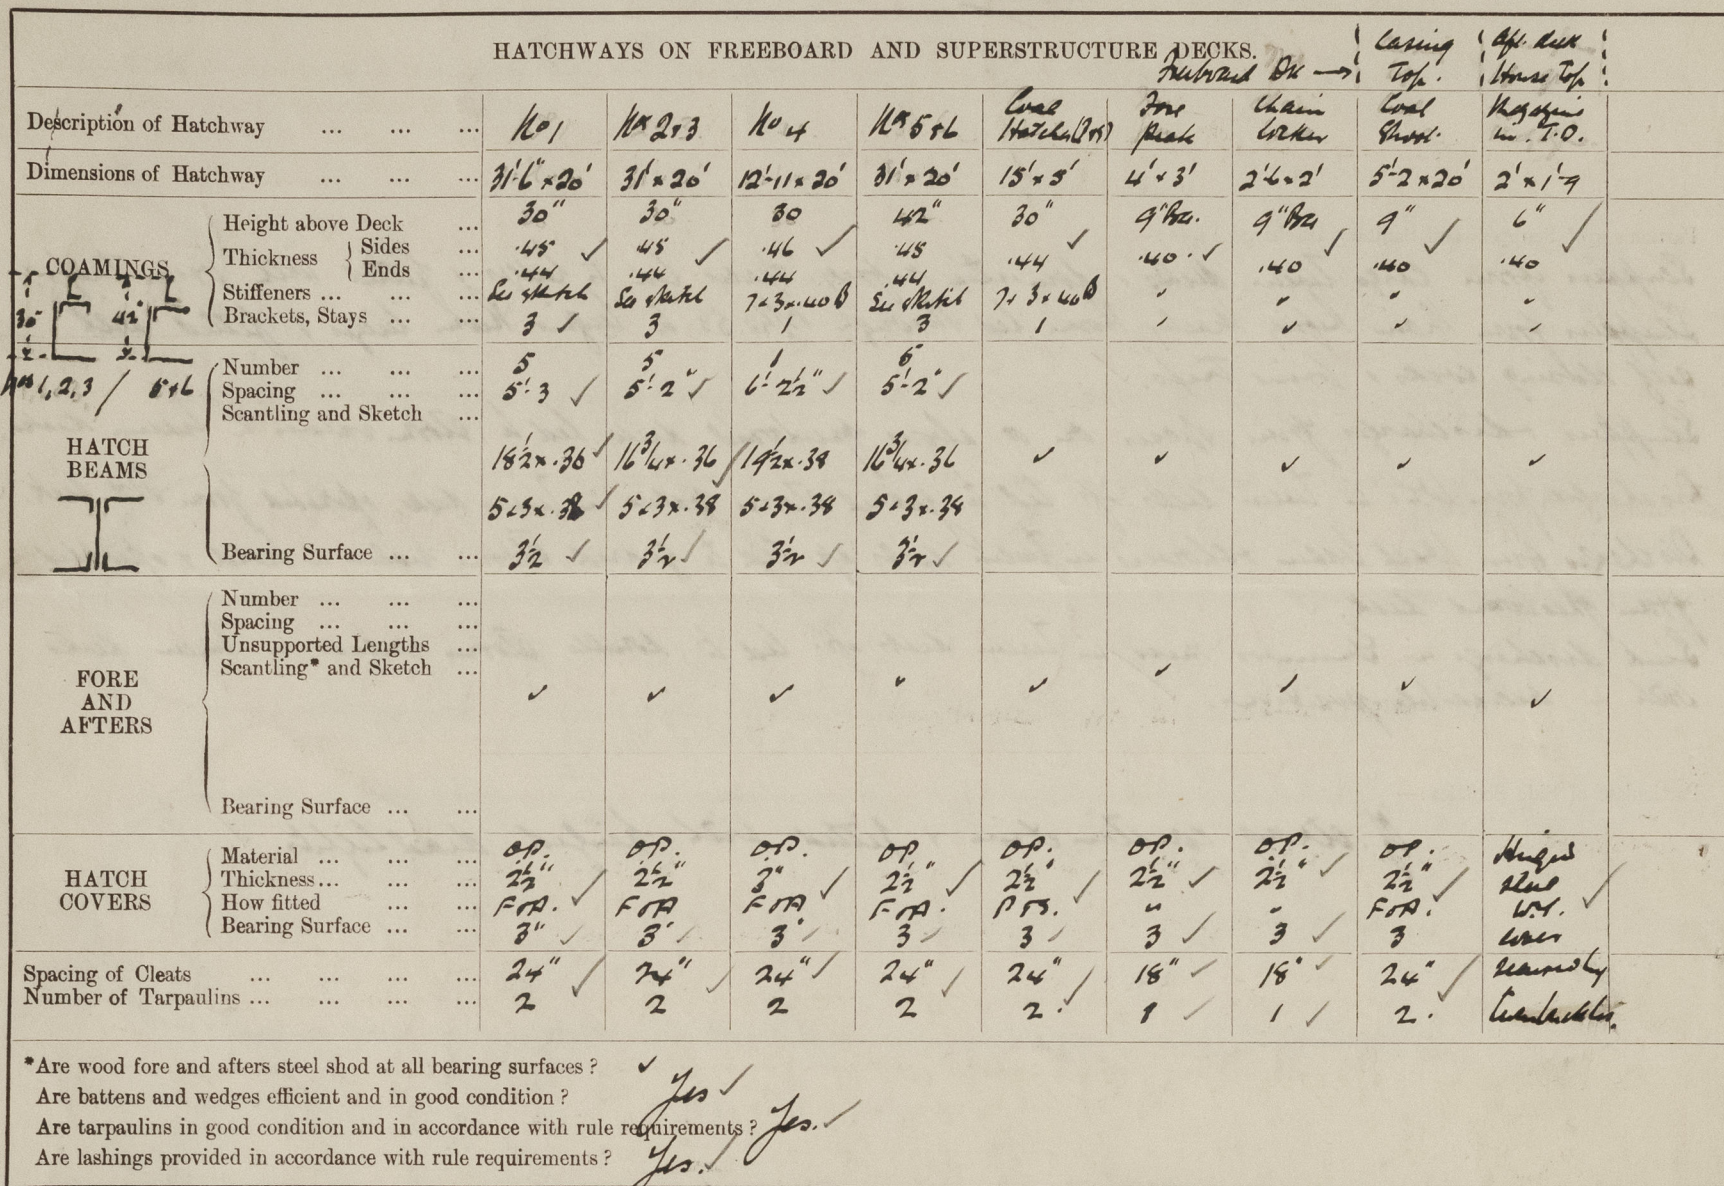 HATCHWAYS ON FREEBOARD AND SUPERSTRUCTURE DECKS.
Freeboard Dk → Casing Top. Aft. deck House Top
Description of Hatchway ... ... ... No 1 Nos 2+3 No 4 Nos 5+6 Coal Hatches Fore Peak Chain Locker Coal Shoot. Magazine in T.D.
Dimensions of Hatchway ... ... ... 31'-6" × 20' 31' × 20' 12'-11 × 20' 31' × 20' 15' × 5' 4' × 3' 2'-6 × 2' 5'-2 × 20' 2' × 1'-9
COAMINGS
Height above Deck ... 30" 30" 30 42" 30" 9" Ba. 9" Ba 9" 6"
Thickness
Sides ... .45 ✓ .45 ✓ .46 ✓ .45 .44 ✓ .40 ✓ .40 ✓ .40 ✓ .40 ✓
Ends ... .44 .44 .44 .44
Stiffeners ... ... ... See sketch See sketch 7 × 3 × .40 B See sketch 7 × 3 × .40 B
Brackets, Stays ... ... 3 ✓ 3 1 3 1
30" 42"
Nos 1, 2, 3 / 5+6
HATCH BEAMS
Number ... ... ... 5 5 1 5
Spacing ... ... ... 5'-3 ✓ 5'-2" ✓ 6'-2½" ✓ 5'-2" ✓
Scantling and Sketch ...
18½ × .36 ✓ 16¾ × .36 ✓ 19½ × .38 16¾ × .36 ✓ ✓ ✓ ✓ ✓
5 × 3 × .38 ✓ 5 × 3 × .38 5 × 3 × .38 5 × 3 × .38
Bearing Surface ... ... 3½ ✓ 3½ ✓ 3½ ✓ 3½ ✓
FORE AND AFTERS
Number ... ... ...
Spacing ... ... ...
Unsupported Lengths ...
Scantling* and Sketch ...
✓ ✓ ✓ ✓ ✓ ✓ ✓ ✓ ✓
Bearing Surface ... ...
HATCH COVERS
Material ... ... ... OP. OP. OP. OP OP. OP. OP. OP. Hinged
Thickness ... ... ... 2½" ✓ 2½" 3" ✓ 2½" ✓ 2½" ✓ 2½" ✓ 2½" ✓ 2½" ✓ steel ✓
How fitted ... ... F+A. F+A F+A F+A. P+S. " " F+A. W.T.
Bearing Surface ... ... 3" ✓ 3" ✓ 3" ✓ 3 ✓ 3 ✓ 3 ✓ 3 ✓ 3 cover
Spacing of Cleats ... ... ... 24" ✓ 24" ✓ 24" ✓ 24" ✓ 24" ✓ 18" ✓ 18" ✓ 24" ✓ secured by
Number of Tarpaulins ... ... ... 2 2 2 2 2. 1 ✓ 1 ✓ 2.
*Are wood fore and afters steel shod at all bearing surfaces? ✓
Are battens and wedges efficient and in good condition? Yes ✓
Are tarpaulins in good condition and in accordance with rule requirements? Yes. ✓
Are lashings provided in accordance with rule requirements? Yes. ✓